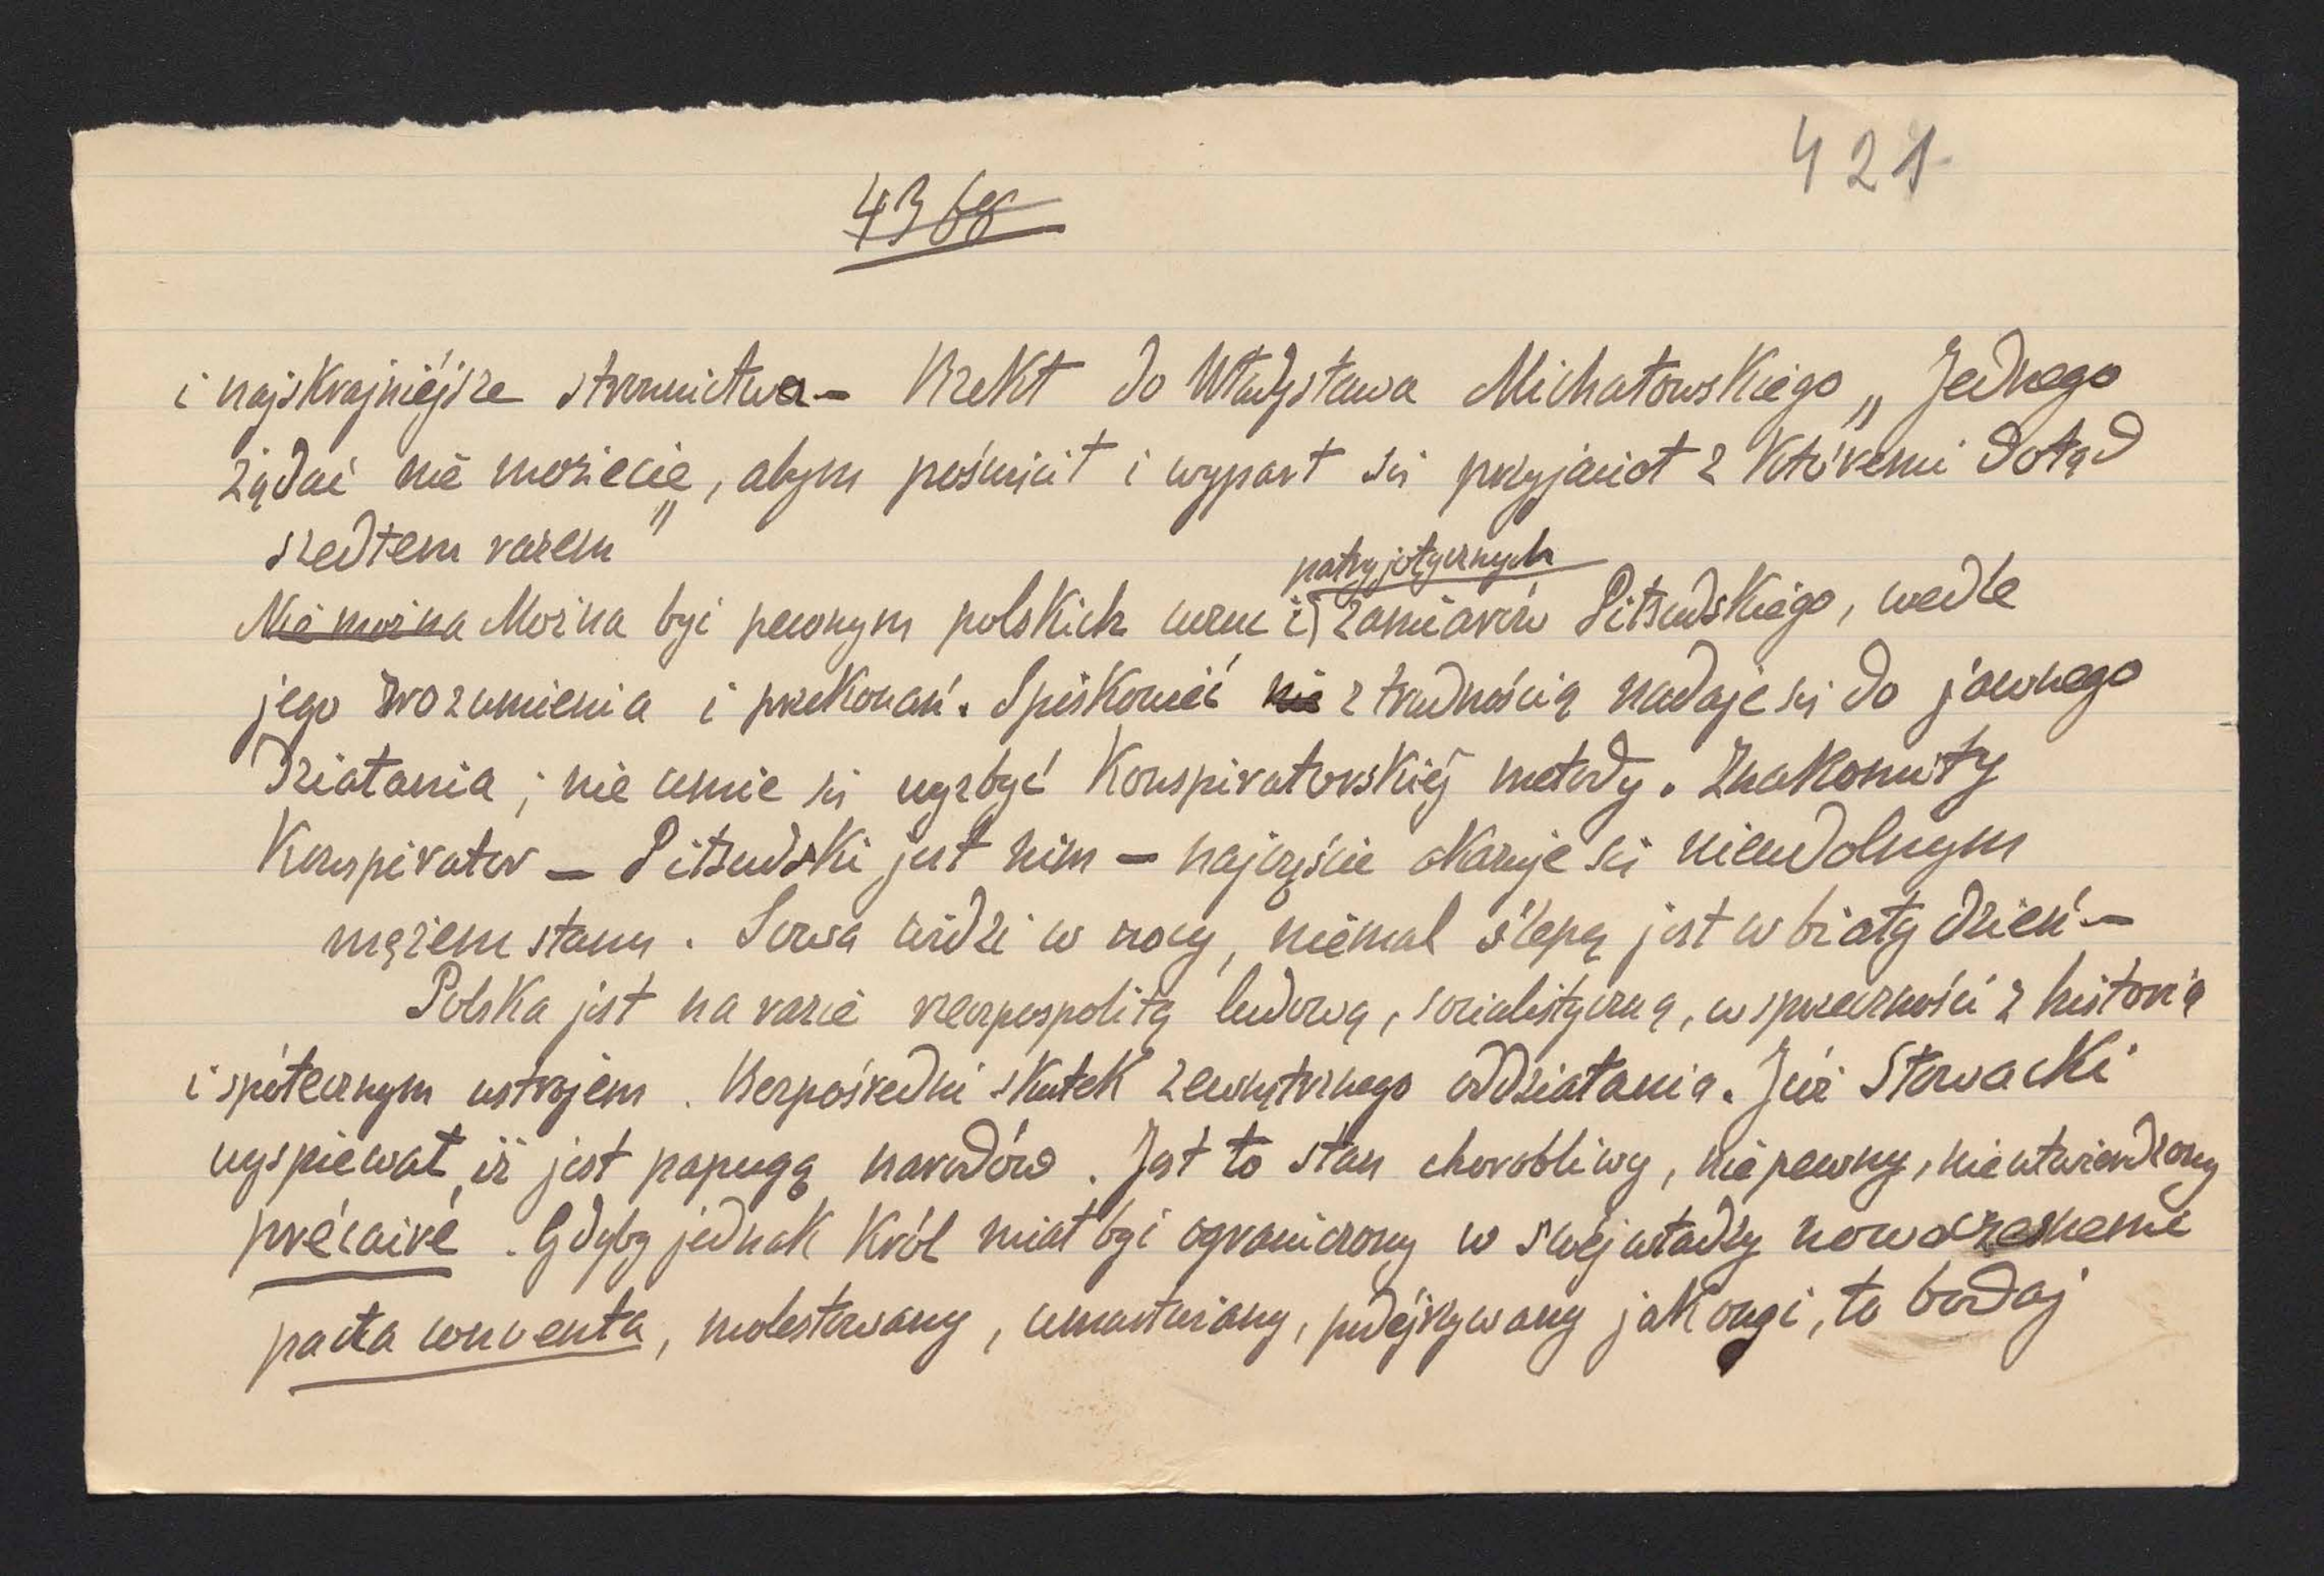 421
i najskrajniéjsze stronnictwa – Rzekł do Władysława Michałowskiego „Jednego
żądać nie możecie, abym poświęcił i wyparł się przyjaciół z któremi dotąd
szedłem razem"
patryjotycznych
Nie można Można być pewnym polskich uczuć i zamiarów Piłsudskiego, wedle
jego zrozumienia i przekonań. Spiskowiéc nie z trudnością nadaje się do jawnego
działania; nie umie się wyzbyć konspiratorskiéj metody. Znakomity
Konspirator – Piłsudski jest nim – najczęście okazuje się nieudolnym
mężem stanu. Sowa widzi w nocy, niemal ślepą jest w biały dzień –
Polska jest na razie rzecząpospolitą ludową, socialistyczną, w sprzeczności z historią
i spółecznym ustrojem. Bezpośredni skutek zewnętrznego oddziałania. Już Słowacki
wyspiewał, iż jest papugą narodów. Jest to stan chorobliwy, niepewny, nieutwierdzony
précaire. Gdyby jednak Król miał być ograniczony w swéj władzy nowoczesnemi
pacta conventa, molestowany, umartwiany, podéjrzywany jak ongi, to bodaj